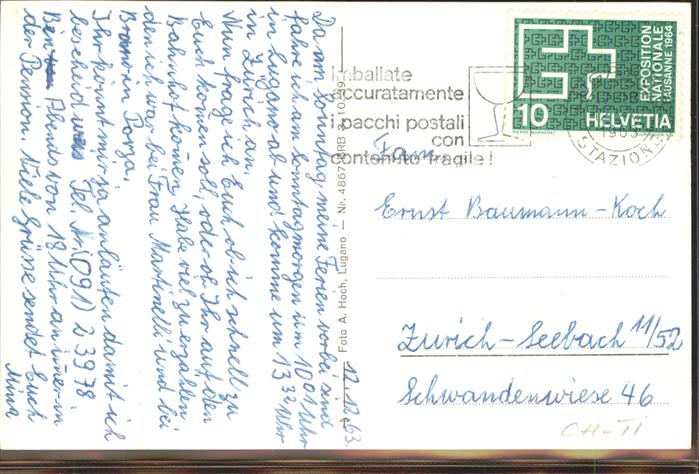 12.12.63.
Da am Sonntag meine Ferien vorbei sind
fahre ich am Sonntagmorgen um 10 01 Uhr
in Lugano ab und komme um 13 32 Uhr
in Zürich an.
Nun frage ich Euch ob ich schnell zu
Euch kommen soll, oder ob Ihr auf den
Bahnhof kommen. Habe viel zu erzählen
den ich war bei Frau Martinelli und bei
in Porza.
Ihr könnt mir ja anläuten damit ich
bescheid weis Tel. Nr. (091) 2 39 78
Bin Abends von 18 Uhr an immer in
der Pension. Viele Grüsse sendet Euch
Mina
Foto A. Hoch, Lugano — Nr. 4867
Imballate
accuratamente
i pacchi postali
con
contenuto fragile!
EXPOSITION
NATIONALE
LAUSANNE 1964
10 HELVETIA
STAZIONE
Fam.
Ernst Baumann-Koch
Zürich-Seebach 11/52
Schwandenwiese 46
CH-TI